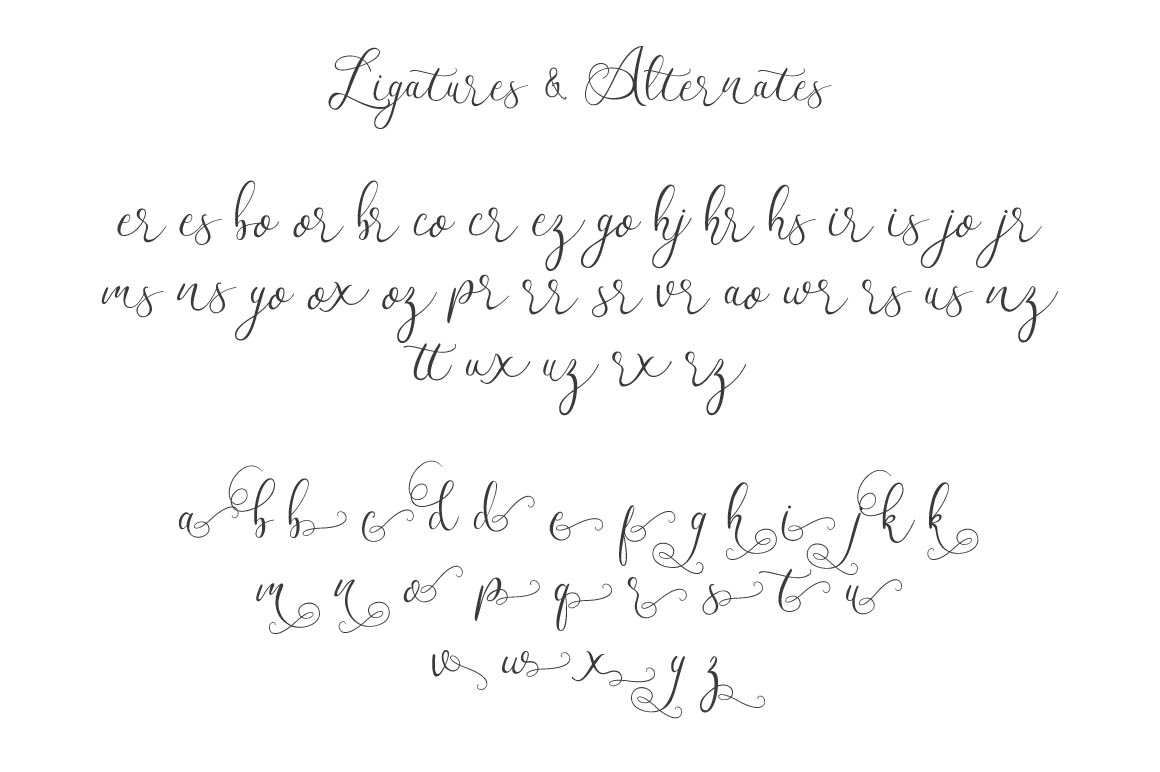 Ligatures & Alternates
er es bo or br co cr ez go hj hr hs ir is jo jr
ms ns yo ox oz pr rr sr vr ao wr rs us nz
tt ux uz rx rz
a b b c d d e f g h i j k k
m n o p q r s t u
v w x y z